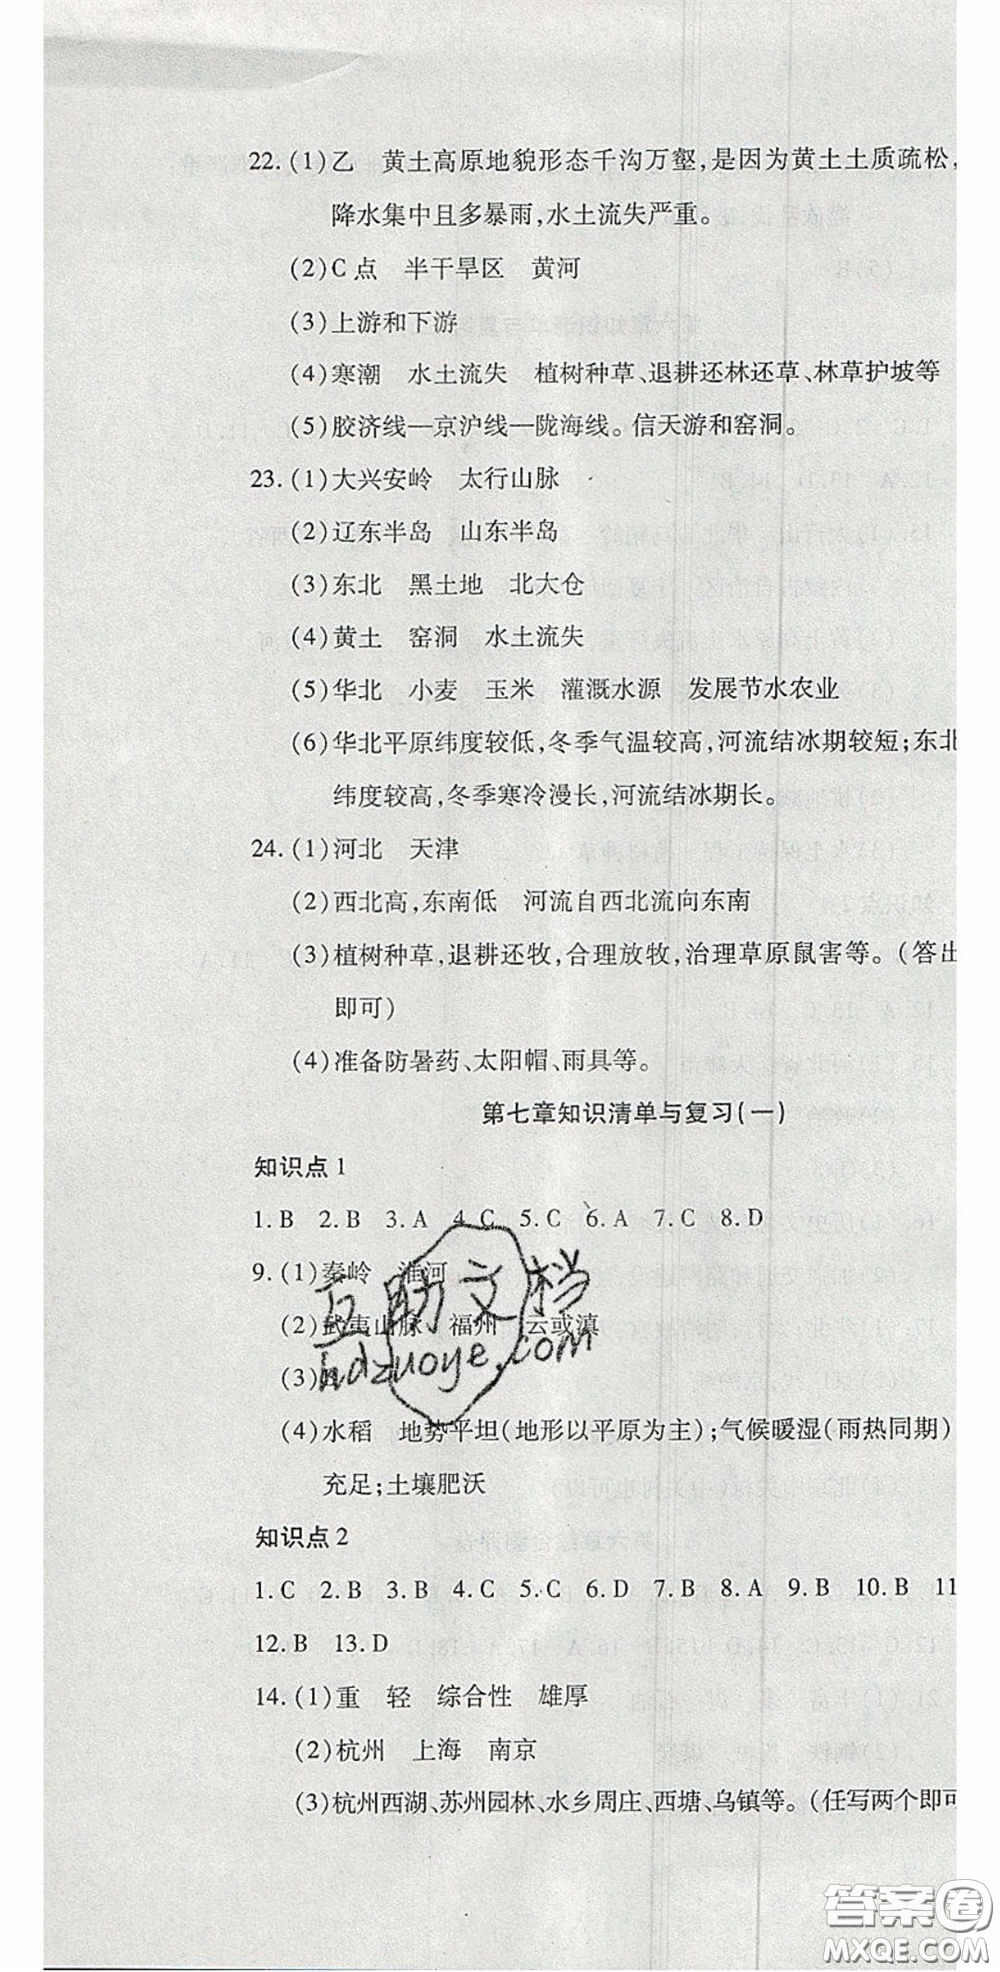 22. (1)乙　黄土高原地貌形态千沟万壑,是因为黄土土质疏松,
降水集中且多暴雨,水土流失严重。
(2)C点　半干旱区　黄河
(3)上游和下游
(4)寒潮　水土流失　植树种草、退耕还林还草、林草护坡等
(5)胶济线—京沪线—陇海线。信天游和窑洞。
23. (1)大兴安岭　太行山脉
(2)辽东半岛　山东半岛
(3)东北　黑土地　北大仓
(4)黄土　窑洞　水土流失
(5)华北　小麦　玉米　灌溉水源　发展节水农业
(6)华北平原纬度较低,冬季气温较高,河流结冰期较短;东北
纬度较高,冬季寒冷漫长,河流结冰期长。
24. (1)河北　天津
(2)西北高,东南低　河流自西北流向东南
(3)植树种草,退耕还牧,合理放牧,治理草原鼠害等。(答出
即可)
(4)准备防暑药、太阳帽、雨具等。
第七章知识清单与复习(一)
知识点1
1. B　2. B　3. A　4. C　5. C　6. A　7. C　8. D
9. (1)秦岭　淮河
(2)武夷山脉　福州　云或滇
(3)
(4)水稻　地势平坦(地形以平原为主);气候暖湿(雨热同期)
充足;土壤肥沃
互助文档
hdzuoye.com
知识点2
1. C　2. B　3. B　4. C　5. C　6. D　7. B　8. A　9. B　10. B　11
12. B　13. D
14. (1)重　轻　综合性　雄厚
(2)杭州　上海　南京
(3)杭州西湖、苏州园林、水乡周庄、西塘、乌镇等。(任写两个即可
答案圈
MXQE.COM